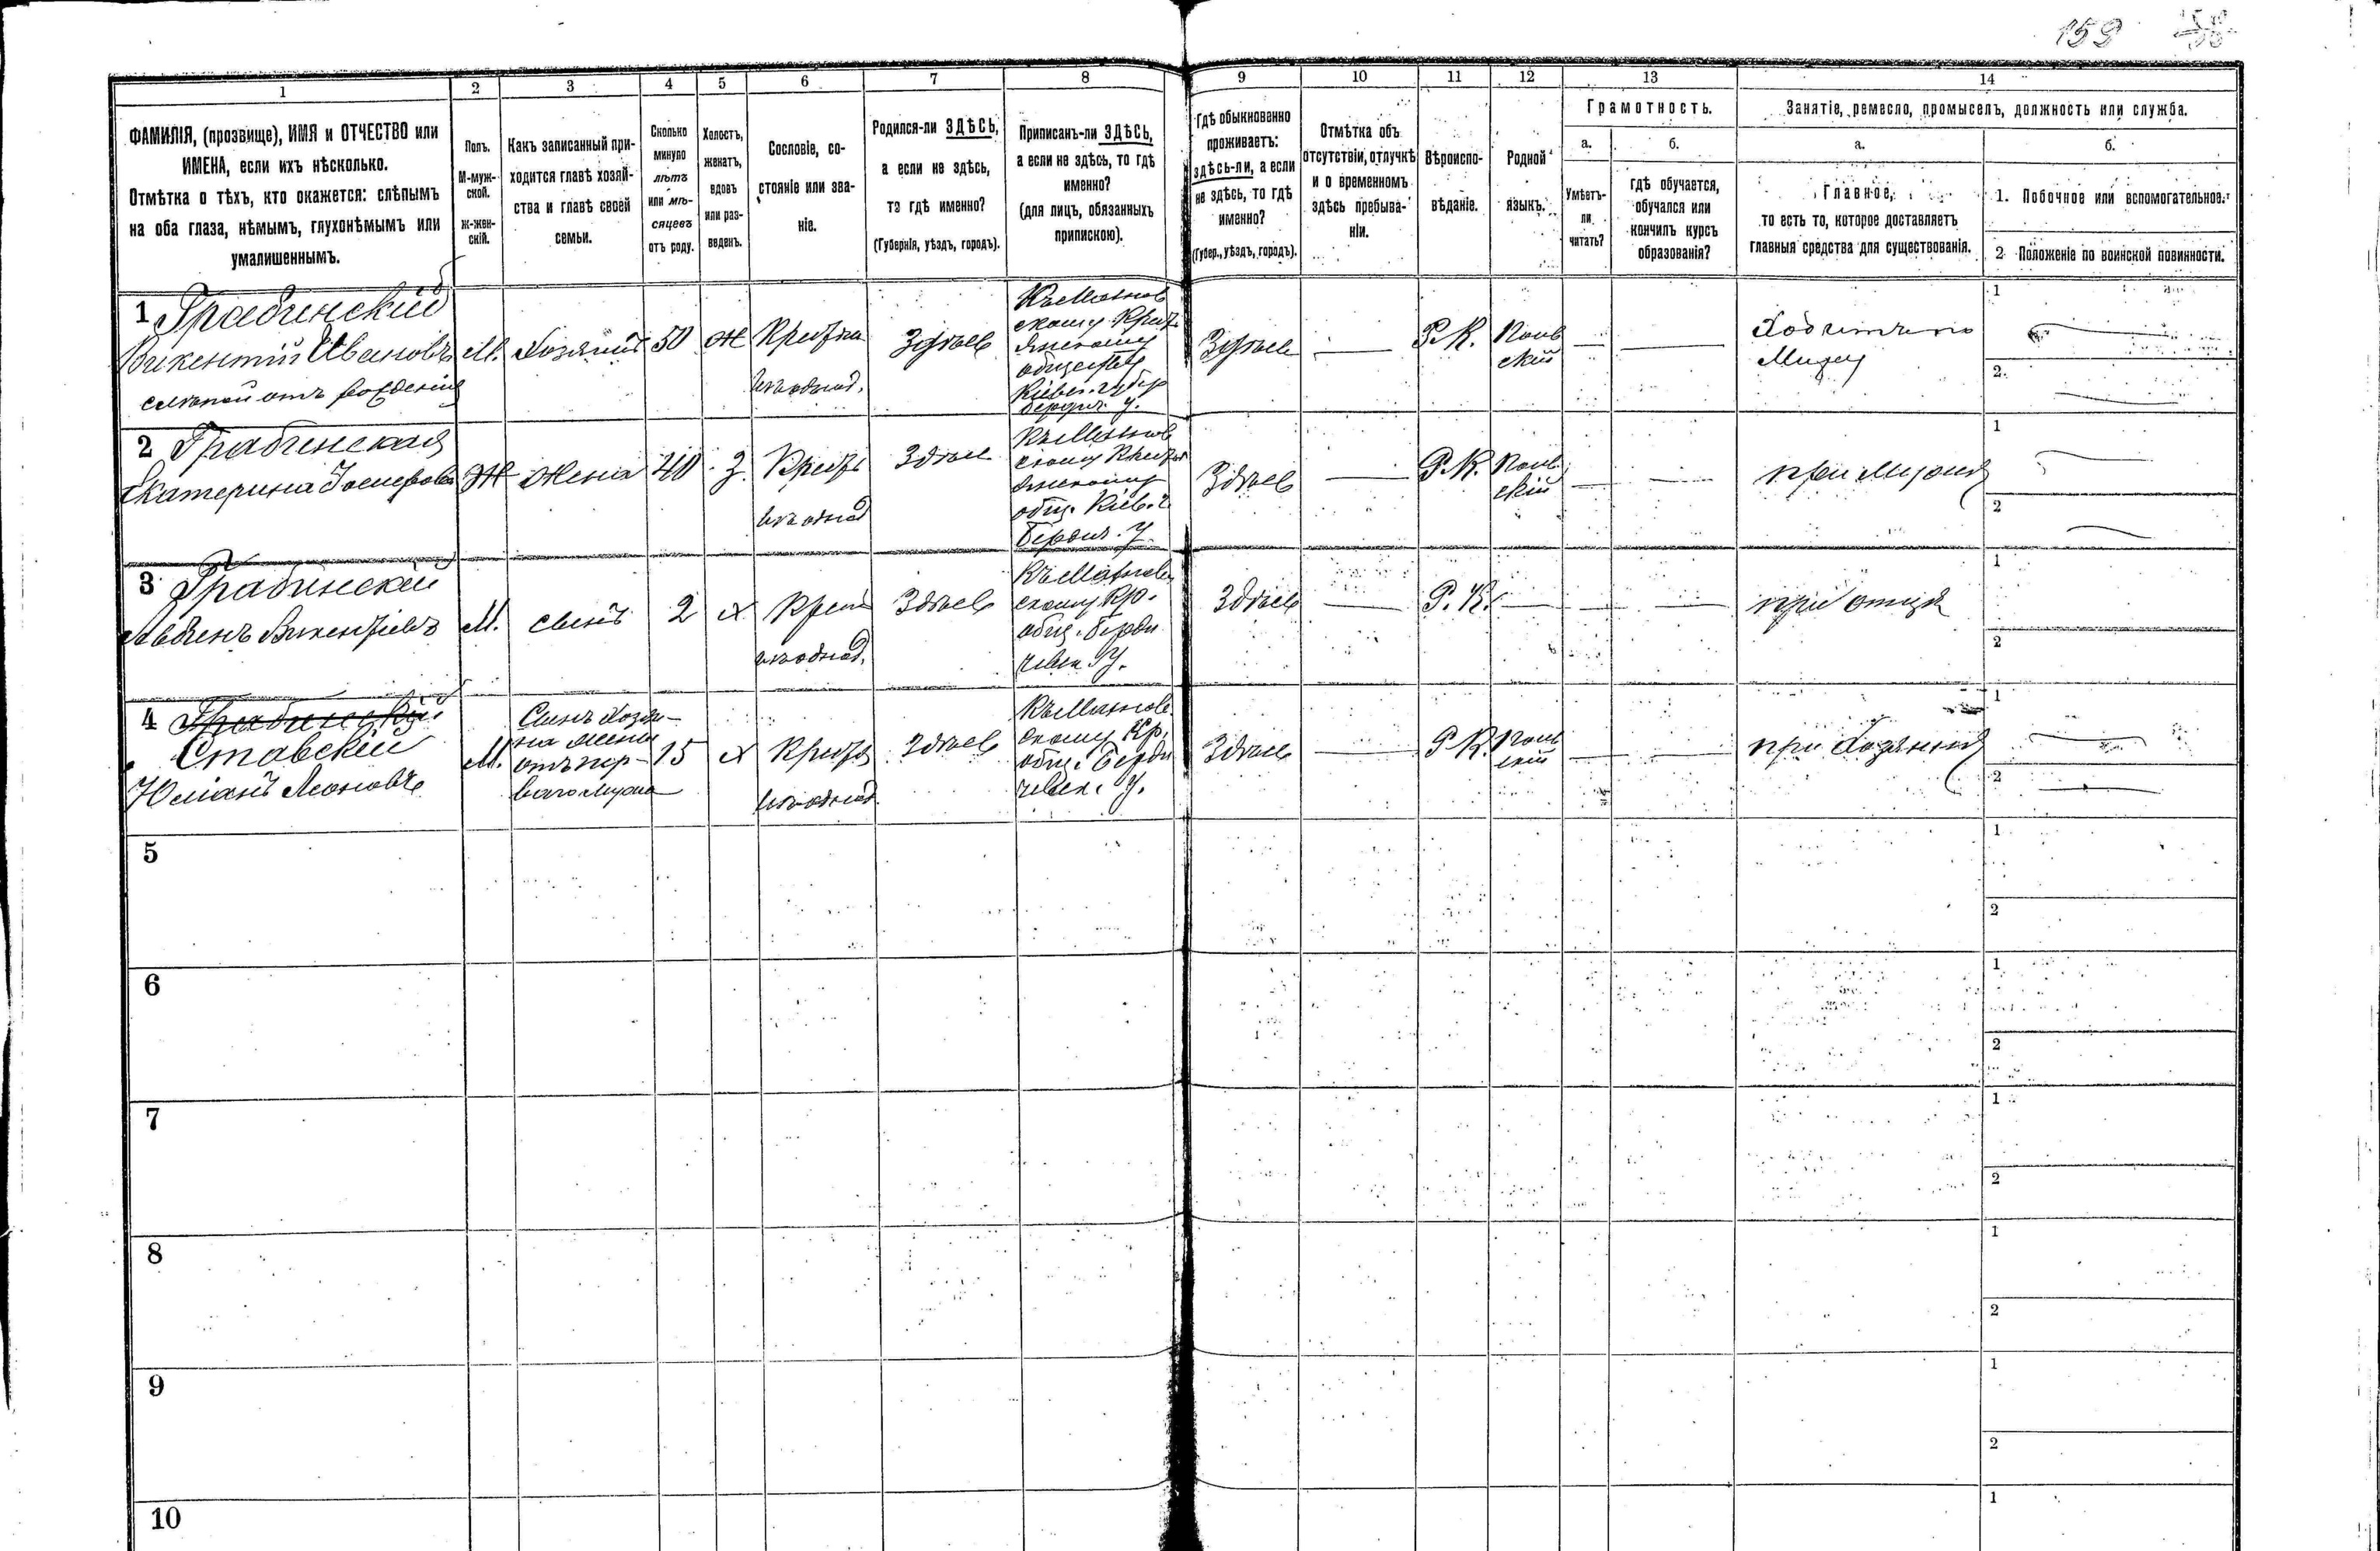 159
1
2
3
4
5
6
7
8
9
10
11
12
13
14
ФАМИЛІЯ, (прозвище), ИМЯ и ОТЧЕСТВО или
ИМЕНА, если ихъ нѣсколько.
Отмѣтка о тѣхъ, кто окажется: слѣпымъ
на оба глаза, нѣмымъ, глухонѣмымъ или
умалишеннымъ.
Полъ.
М-муж-
ской.
ж-жен-
скій.
Какъ записанный при-
ходится главѣ хозяй-
ства и главѣ своей
семьи.
Сколько
минуло
лѣтъ
или мѣ-
сяцевъ
отъ роду.
Холостъ,
женатъ,
вдовъ
или раз-
веденъ.
Сословіе, со-
стояніе или зва-
ніе.
Родился-ли ЗДѢСЬ,
а если не здѣсь,
то гдѣ именно?
(Губернія, уѣздъ, городъ).
Приписанъ-ли ЗДѢСЬ,
а если не здѣсь, то гдѣ
именно?
(для лицъ, обязанныхъ
припискою).
Гдѣ обыкновенно
проживаетъ:
здѣсь-ли, а если
не здѣсь, то гдѣ
именно?
(Губер., уѣздъ, городъ).
Отмѣтка объ
отсутствіи, отлучкѣ
и о временномъ
здѣсь пребыва-
ніи.
Вѣроиспо-
вѣданіе.
Родной
языкъ.
Грамотность.
а.
Умѣетъ-
ли
читать?
б.
гдѣ обучается,
обучался или
кончилъ курсъ
образованія?
Занятіе, ремесло, промыселъ, должность или служба.
а.
Главное,
то есть то, которое доставляетъ
главныя средства для существованія.
б.
1. Побочное или вспомогательное.
2 Положеніе по воинской повинности.
1 Грабинскій
Викентій Ивановъ
слѣпой отъ рожденія
М.
Хозяинъ
50
ж
изъ однод.
Здѣсь
обществу
Здѣсь
Р. К.
Поль
скій
Ходитъ по
Миру
1
2.
2 Грабинская
Екатерина Іосифова
Ж
Жена
40
З.
изъ однод
Здѣсь
общ. Кіев. г.
Бердич. У.
Здѣсь
Р. К.
Поль
скій
при Мужѣ
1
2
3 Грабинскій
Викентіевъ
М.
сынъ
2
х
Крест
изъ однод.
Здѣсь
скому Кр.
общ. Берди
чевск. У.
Здѣсь
Р. К.
при отцѣ
1
2
4 Грабинскій
Ставскій
Юліанъ Леоновъ
М.
Сынъ Хозя-
на жены
отъ пер-
ваго мужа
15
х
изъ однод.
Здѣсь
скому Кр.
общ. Берди
чевск. У.
Здѣсь
Р. К.
Поль
скій
при Хозяинѣ
1
2
5
1
2
6
1
2
7
1
2
8
1
2
9
1
2
10
1